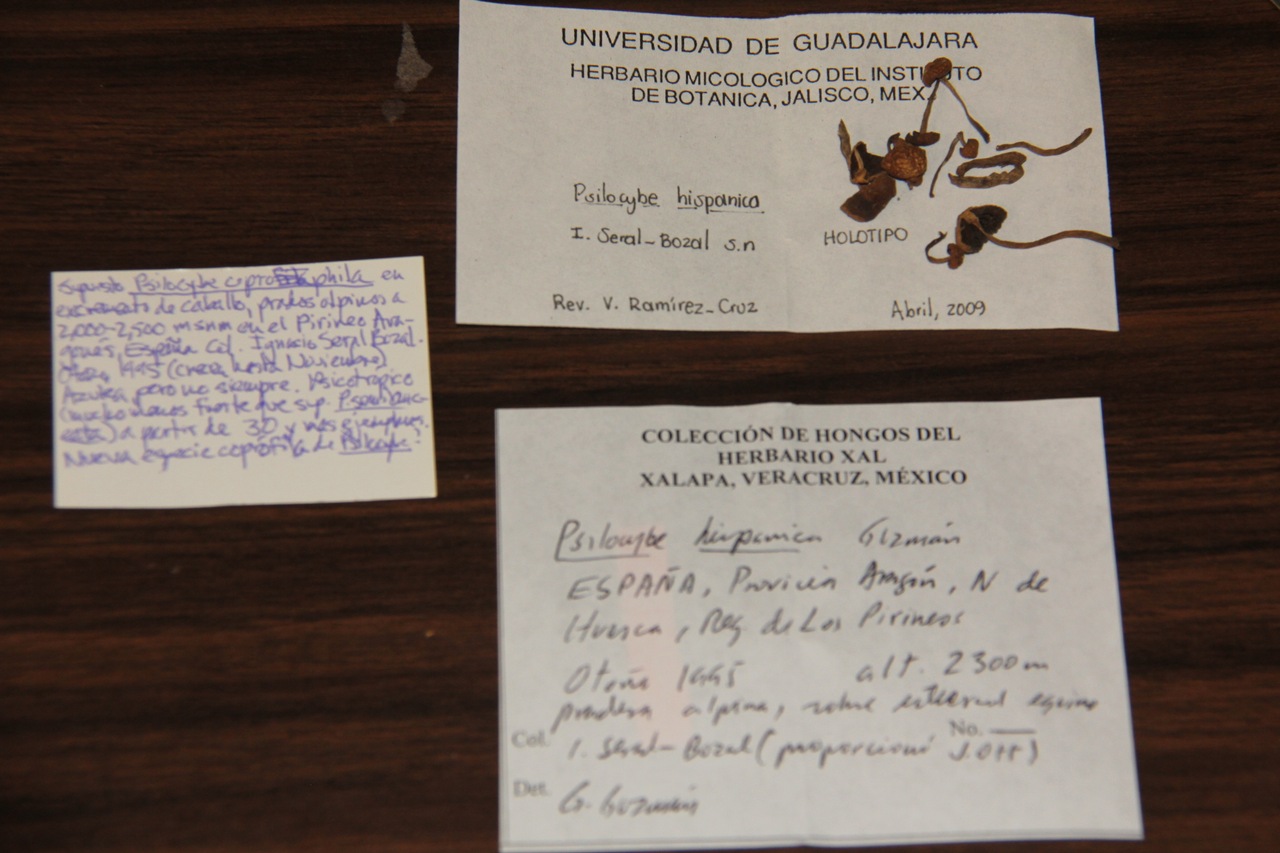 UNIVERSIDAD DE GUADALAJARA
HERBARIO MICOLOGICO DEL INSTITUTO
DE BOTANICA, JALISCO, MEX.
Psilocybe hispanica
I. Seral-Bozal s.n
HOLOTIPO
Rev. V. Ramírez-Cruz
Abril, 2009
Supuesto Psilocybe coprophila en
excremento de caballo, prados alpinos a
2,000-2,500 msnm en el Pirineo Ara-
gonés, España Col. Ignacio Seral Bozal.
Otoño, 1995 (crece hasta Noviembre)
Azulea pero no siempre. Psicotrópico
(mucho menos fuerte que sup.
a partir de 30 y más ejemplares.
Nueva especie coprófila de Psilocybe?
COLECCIÓN DE HONGOS DEL
HERBARIO XAL
XALAPA, VERACRUZ, MÉXICO
Psilocybe hispanica Guzmán
ESPAÑA, Provincia Aragón, N de
Huesca, Reg. de Los Pirineos
Otoño 1995 alt. 2300m
pradera alpina, sobre estiercol equino
Col. I. Seral-Bozal (proporcionó J. Ott) No.
Det. G. Guzmán